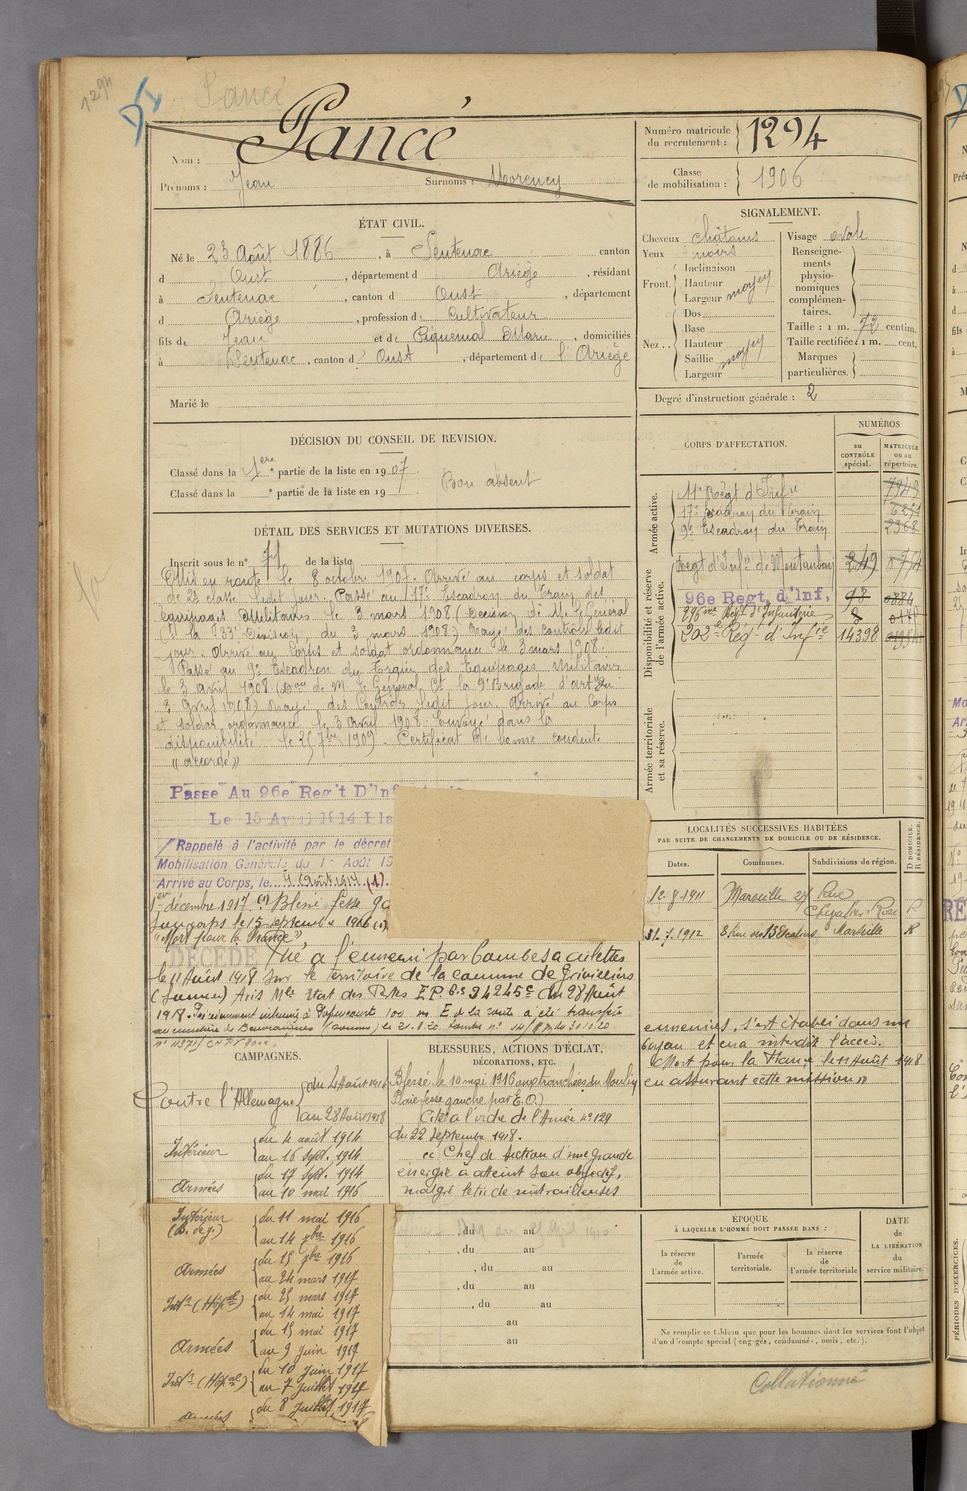 1294
Pancé
Pancé
Nom :
Prénoms : Jean Surnoms : Morency
Numéro matricule
du recrutement : 1294
Classe
de mobilisation : 1906
ÉTAT CIVIL.
Né le 23 Août 1886, à Sentenac canton
d Oust, département d Ariège, résidant
à Sentenac, canton d Oust, département
d Ariège, profession de Cultivateur
fils de Jean et de Piquemal Marie, domiciliés
à Sentenac, canton d' Oust, département de l'Ariège
Marié le
SIGNALEMENT.
Cheveux châtains
Yeux noirs
Front
Inclinaison
Hauteur
Largeur moyen
Nez
Dos
Base
Hauteur
Saillie moyen
Largeur
Visage ovale
Renseigne-
ments
physio-
nomiques
complémen-
taires.
Taille : 1 m. 72 centim.
Taille rectifiée : 1 m. cent.
Marques
particulières.
Degré d'instruction générale : 2
DÉCISION DU CONSEIL DE REVISION.
Classé dans la 1ère partie de la liste en 1907
Classé dans la e partie de la liste en 19
Bon absent
DÉTAIL DES SERVICES ET MUTATIONS DIVERSES.
Inscrit sous le n° de la liste
Mis en route le 8 octobre 1907. Arrivé au corps et soldat
de 2e classe ledit jour. Passé au 17e Escadron du Train des
Equipages Militaires le 3 mars 1908 (Décision de M. le Général
Ct la 33e Division du 3 mars 1908) Rayé des contrôles ledit
jour. Arrivé au Corps et soldat ordonnance le 3 mars 1908.
Passé au 9e Escadron du Train des Equipages Militaires
le 3 avril 1908 (Don de M. le Général Ct la 9e Brigade d'artie du
3 avril 1908) Rayé des Contrôles ledit jour. Arrivé au Corps
et soldat ordonnance le 3 avril 1908. Envoyé dans la
disponibilité le 25 7bre 1909. Certificat de bonne conduite
"accordé"
Passé Au 96e Reg't D'Inf
Le 15 Avril 1914
Rappelé à l'activité par le décret
Mobilisation Générale du 1er Août 19
Arrivé au Corps, le 4 Août 1914 (1).
1er décembre 1917 (1) Blessé fesse ga
au corps le 15 septembre 1916 (1)
"Mort pour la France"
DÉCÉDÉ Tué à l'ennemi par bombes à ailettes
le 11 Août 1918 sur le territoire de la commune de Grivillers
(Somme) Avis Mle Etat des Pertes E.P. 34245 du 28 Août
1918. Précédemment inhumé à Popincourt 100 m. E de la route a été transféré
au cimetière de Beuvraignes (Somme) le 21.8.20
CORPS D'AFFECTATION.
NUMÉROS
au
CONTRÔLE
spécial.
MATRICULE
ou au
répertoire.
Armée active.
Régt d'Infie
17e Escadron du Train
9e Escadron du Train 2368
Disponibilité et réserve
de l'armée active.
Regt d'Infie de Montauban 249
96e Regt, d'Inf,
296ème Régt d'Infanterie
202e Rég' d'Infie 14398
Armée territoriale
et sa réserve.
LOCALITÉS SUCCESSIVES HABITÉES
PAR SUITE DE CHANGEMENTS DE DOMICILE OU DE RÉSIDENCE.
Dates. Communes. Subdivisions de région.
D DOMICILE.
R RÉSIDENCE.
12.8.1911 Marseille 27 Rue
Chevalier Rose R
31.7.1912 8 Rue des 13 Escaliers Marseille R
CAMPAGNES.
Contre l'Allemagne
du 4 Août 1914
au 28 Août 1918
Intérieur
du 4 août 1914
au 16 Sept. 1914
Armées
du 17 Sept. 1914
au 10 mai 1916
Intérieur
(B. de g.)
du 11 mai 1916
au 14 9bre 1916
Armées
du 15 9bre 1916
au 24 mars 1917
Intr (Hôpal)
du 25 mars 1917
au 14 mai 1917
Armées
du 15 mai 1917
au 9 juin 1917
Intr (Hôpal)
du 10 juin 1917
au 7 juillet 1917
Armées
du 8 juillet 1917
BLESSURES, ACTIONS D'ÉCLAT,
DÉCORATIONS, ETC.
Blessé le 10 mai 1916 aux tranchées du Moulin
Plaie fesse gauche par E.O.)
Cité à l'ordre de l'Armée n° 129
du 22 Septembre 1918.
"Chef de section d'une grande
énergie a atteint son objectif,
malgré le tir de mitrailleuses
ennemies, s'est établi dans un
boyau et en a interdit l'accès.
Mort pour la France le 11 Août 1918
en assurant cette mission"
, du au
, du au
, du au
, du au
, du au
au
au
ÉPOQUE
À LAQUELLE L'HOMME DOIT PASSER DANS :
la réserve
de
l'armée active.
l'armée
territoriale.
la réserve
de
l'armée territoriale
DATE
de
LA LIBÉRATION
du
service militaire.
Ne remplir ce tableau que pour les hommes dont les services font l'objet
d'un décompte spécial (engagés, condamnés, omis, etc.).
Collationné
PÉRIODES D'EXERCICES.